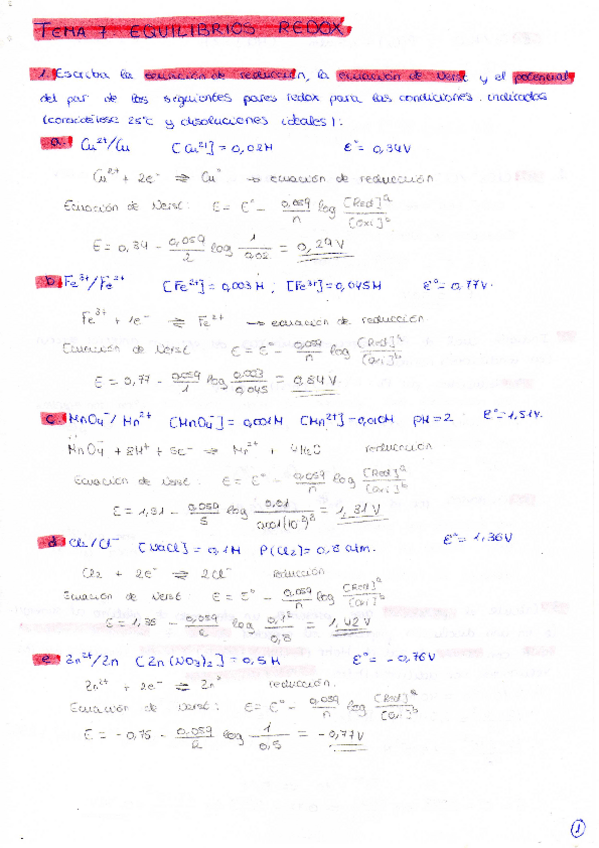 TEMA 7 EQUILIBRIOS REDOX
1. Escriba la ecuación de reducción, la ecuación de Nerst y el potencial
del par de los siguientes pares redox para las condiciones indicadas
(considérese 25ºC y disoluciones ideales):
a. Cu²⁺/Cu [Cu²⁺] = 0,02M Eº = 0,34V
Cu²⁺ + 2e⁻ ⇌ Cuº → ecuación de reducción
Ecuación de Nerst: E = Eº - 0,059/n log [Red]ᵃ/[oxi]ᵇ
E = 0,34 - 0,059/2 log 1/0,02 = 0,29 V
b. Fe³⁺/Fe²⁺ [Fe²⁺] = 0,003M ; [Fe³⁺] = 0,045M Eº = 0,77V.
Fe³⁺ + 1e⁻ ⇌ Fe²⁺ → ecuación de reducción
Ecuación de Nerst E = Eº - 0,059/n log [Red]ᵃ/[oxi]ᵇ
E = 0,77 - 0,059/1 log 0,003/0,045 = 0,84 V.
c. MnO₄⁻/Mn²⁺ [MnO₄⁻] = 0,001M [Mn²⁺] = 0,010M pH = 2 Eº = 1,51V.
MnO₄⁻ + 8H⁺ + 5e⁻ ⇌ Mn²⁺ + 4H₂O reducción
Ecuación de Nerst: E = Eº - 0,059/n log [Red]ᵃ/[oxi]ᵇ
E = 1,51 - 0,059/5 log 0,01/0,001(10⁻²)⁸ = 1,31 V
d. Cl₂/Cl⁻ [NaCl] = 0,1M P(Cl₂) = 0,8 atm. Eº = 1,36V
Cl₂ + 2e⁻ ⇌ 2Cl⁻ reducción
Ecuación de Nerst E = Eº - 0,059/n log [Red]ᵃ/[oxi]ᵇ
E = 1,36 - 0,059/2 log 0,1²/0,8 = 1,42 V
e. Zn²⁺/Zn [Zn(NO₃)₂] = 0,5M Eº = -0,76V
Zn²⁺ + 2e⁻ ⇌ Znº reducción.
Ecuación de Nerst: E = Eº - 0,059/n log [Red]ᵃ/[oxi]ᵇ
E = -0,76 - 0,059/2 log 1/0,5 = -0,77V
1